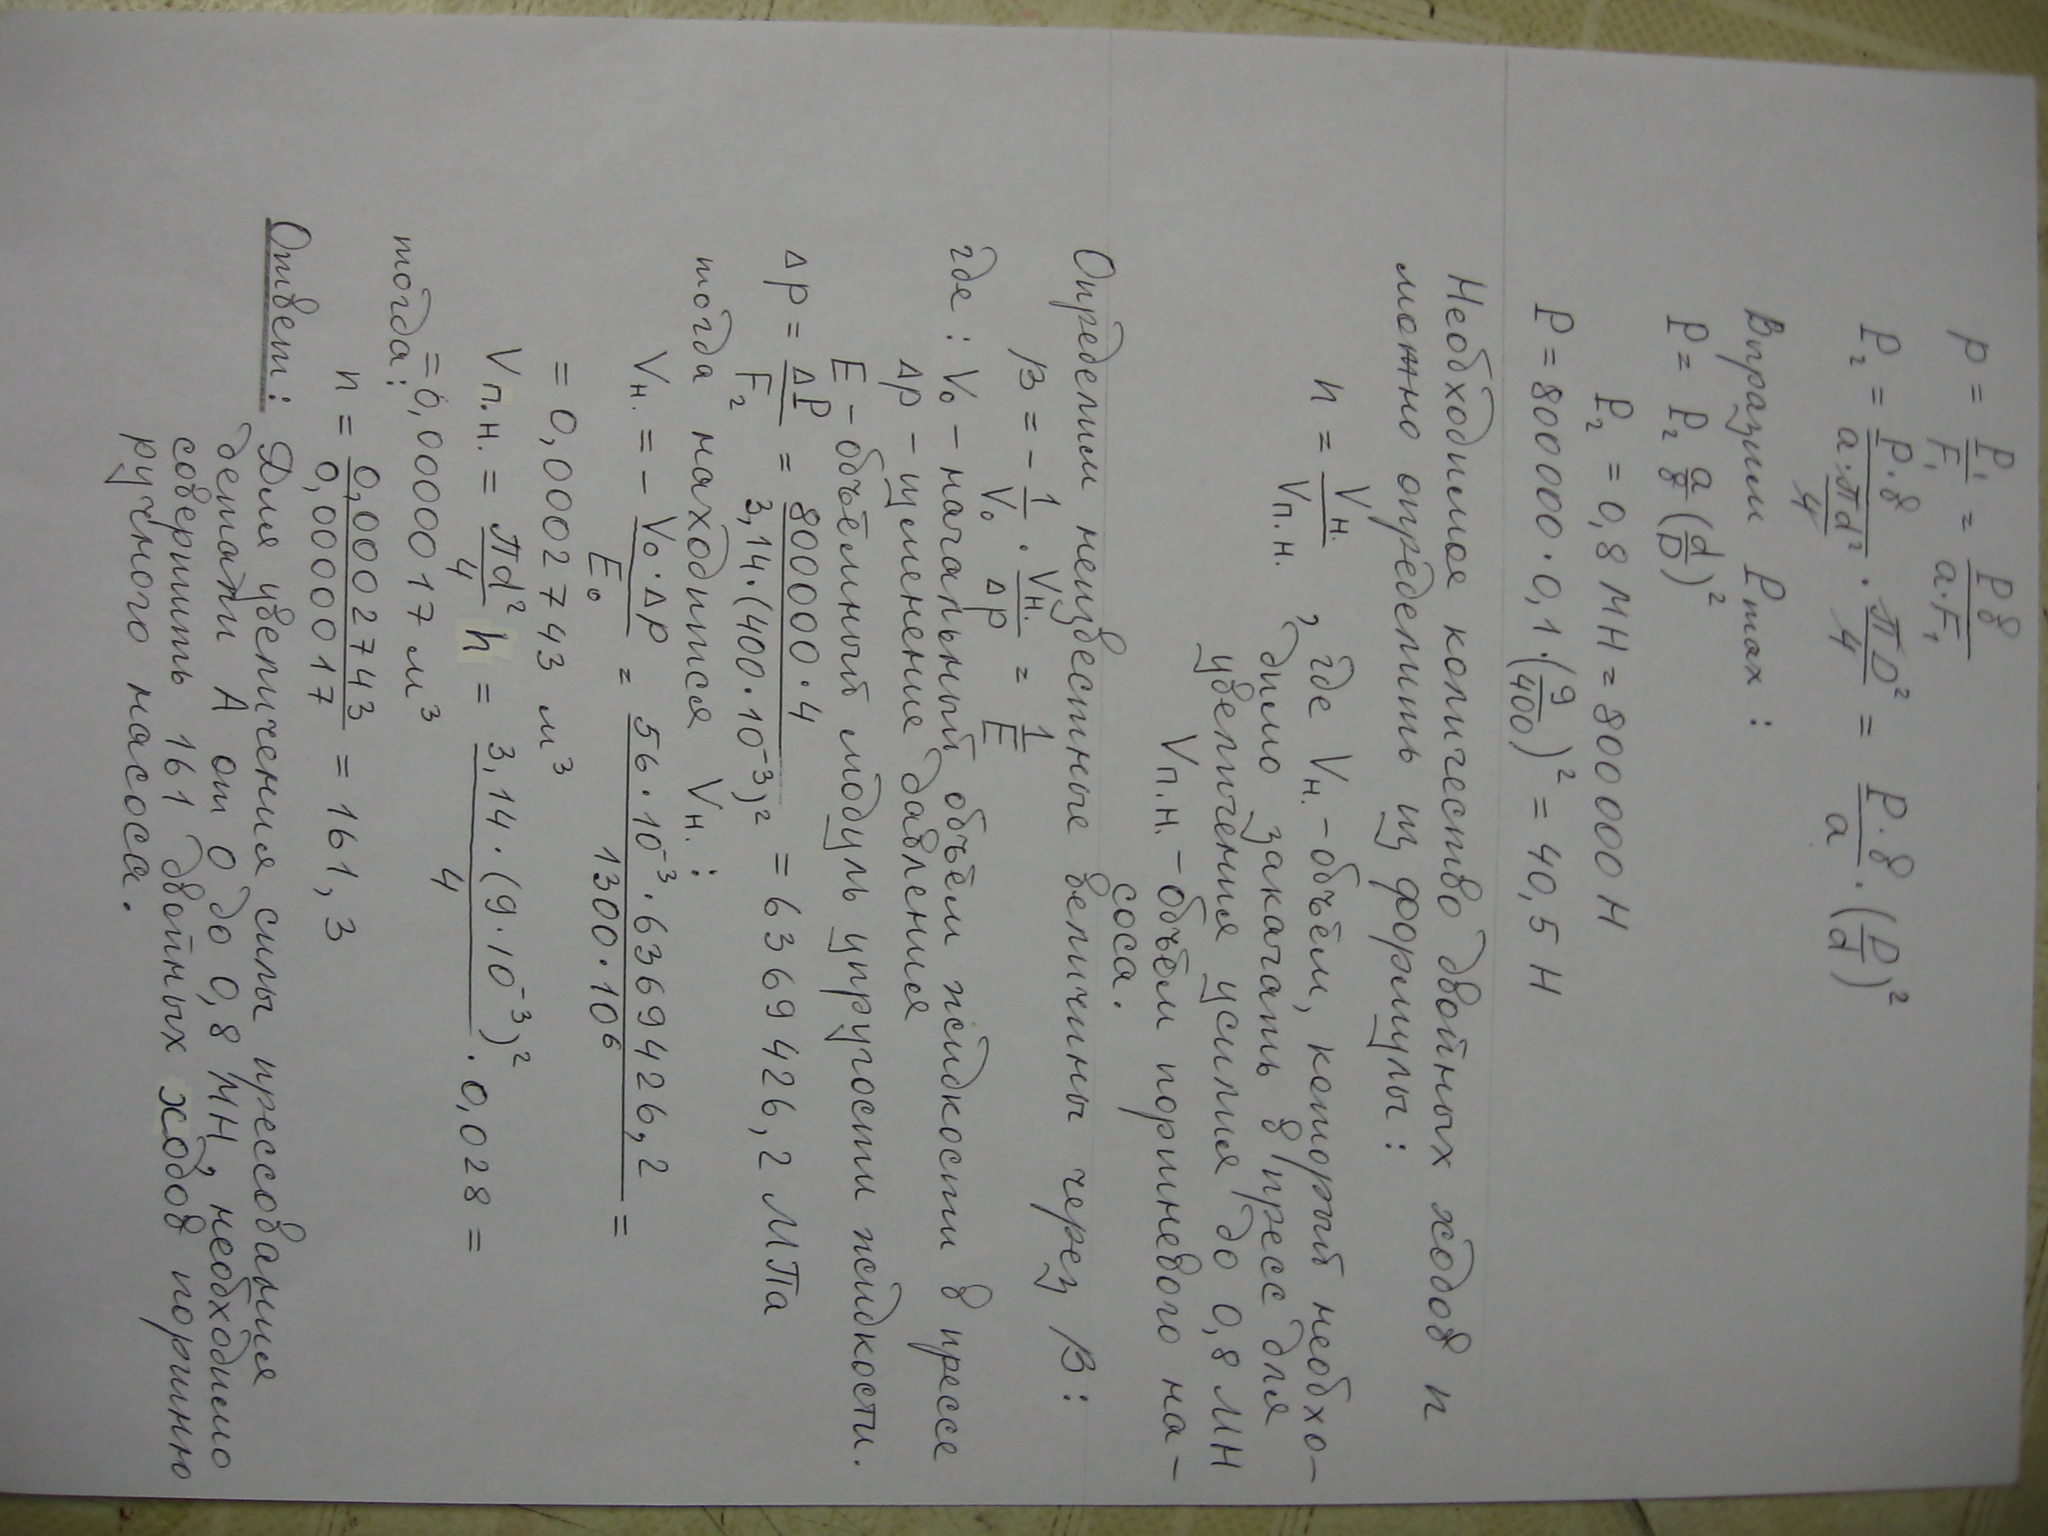 p = P₁/F₁ = Pв/(a·F₁)
P₂ = P·в/(a·πd²/4) · πD²/4 = P·в/a · (D/d)²
Выразим Pmax :
P = P₂ a/в (d/D)²
P₂ = 0,8 МН = 800 000 Н
P = 800000 · 0,1 · (9/400)² = 40,5 Н
Необходимое количество двойных ходов n
можно определить из формулы :
n = Vн./Vп.н. , где Vн. – объём, который необхо-
димо закачать в пресс для
увеличения усилия до 0,8 МН
Vп.н. – объём поршневого на-
соса.
Определим неизвестные величины через β :
β = – 1/V₀ · Vн./Δp = 1/E
где : V₀ – начальный объём жидкости в прессе
Δp – изменение давления
E – объёмный модуль упругости жидкости.
Δp = ΔP/F₂ = 800000 · 4/3,14 · (400 · 10⁻³)² = 6369426,2 МПа
тогда находится Vн. :
Vн. = – V₀ · Δp/E₀ = 56 · 10⁻³ · 6369426,2/1300 · 10⁶ =
= 0,0002743 м³
Vп.н. = πd²/4 h = 3,14 · (9 · 10⁻³)²/4 · 0,028 =
= 0,0000017 м³
тогда :
n = 0,0002743/0,0000017 = 161,3
Ответ : Для увеличения силы прессования
детали А от 0 до 0,8 МН, необходимо
совершить 161 двойных ходов поршню
ручного насоса.